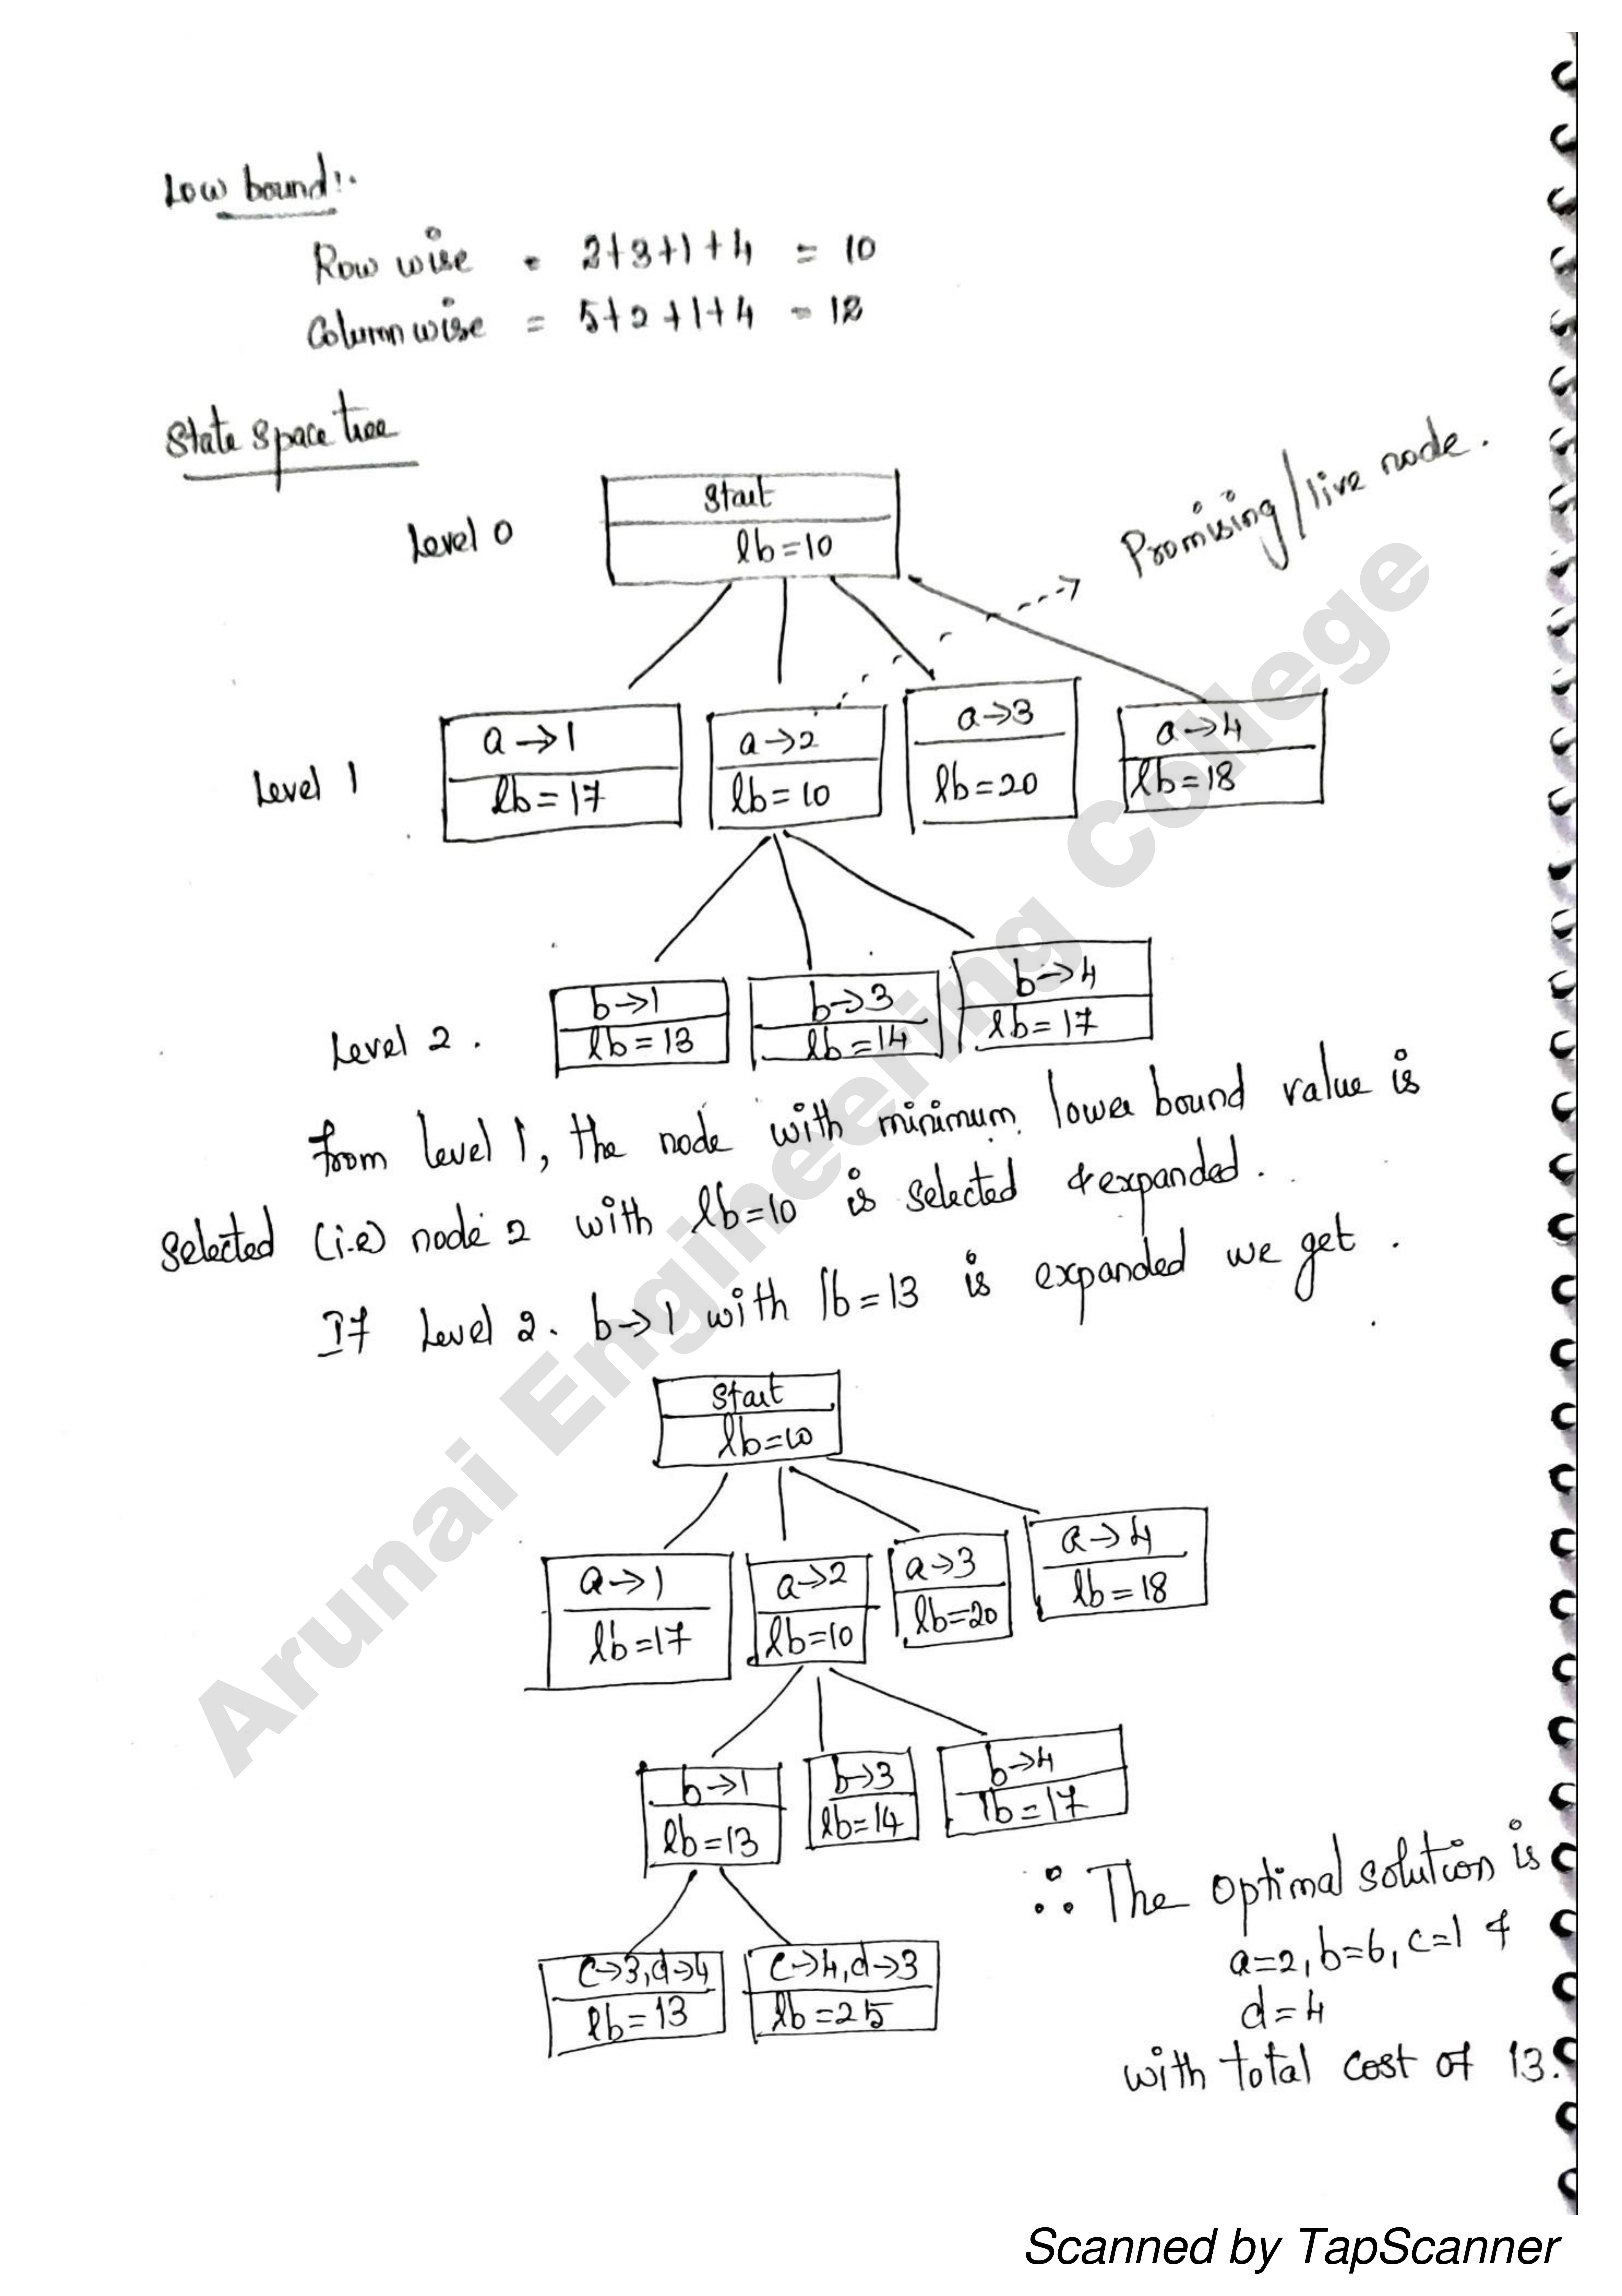 Low bound:-
Row wise = 2+3+1+4 = 10
Column wise = 5+2+1+4 = 12
State space tree
Level 0
Start
lb=10
Promising/live node.
Level 1
a→1
lb=17
a→2
lb=10
a→3
lb=20
a→4
lb=18
Level 2.
b→1
lb=13
b→3
lb=14
b→4
lb=17
from level 1, the node with minimum lower bound value is
selected (i.e) node 2 with lb=10 is selected & expanded.
If Level 2. b→1 with lb=13 is expanded we get.
Start
lb=10
a→1
lb=17
a→2
lb=10
a→3
lb=20
a→4
lb=18
b→1
lb=13
b→3
lb=14
b→4
lb=17
c→3,d→4
lb=13
c→4,d→3
lb=25
∴ The optimal solution is
a=2, b=6, c=1 &
d=4
with total cost of 13.
Arunai Engineering College
Scanned by TapScanner